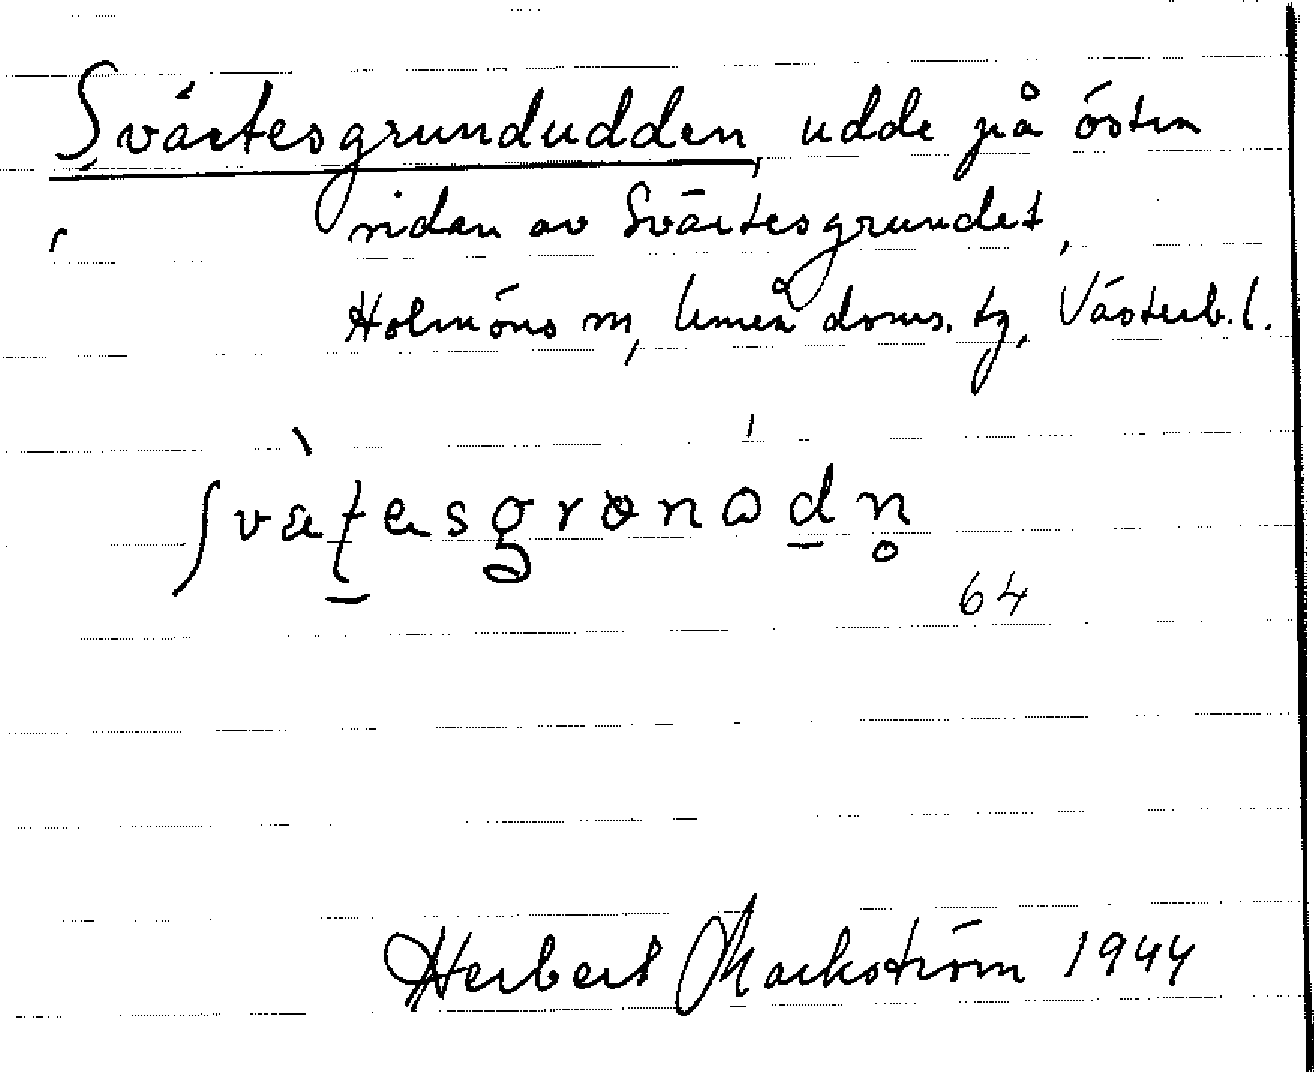 Svärtesgrundudden, udde på östra
sidan av Svärtesgrundet,
Holmöns sn, Umeå doms. tg, Västerb. l.
64
Herbert Markström 1944